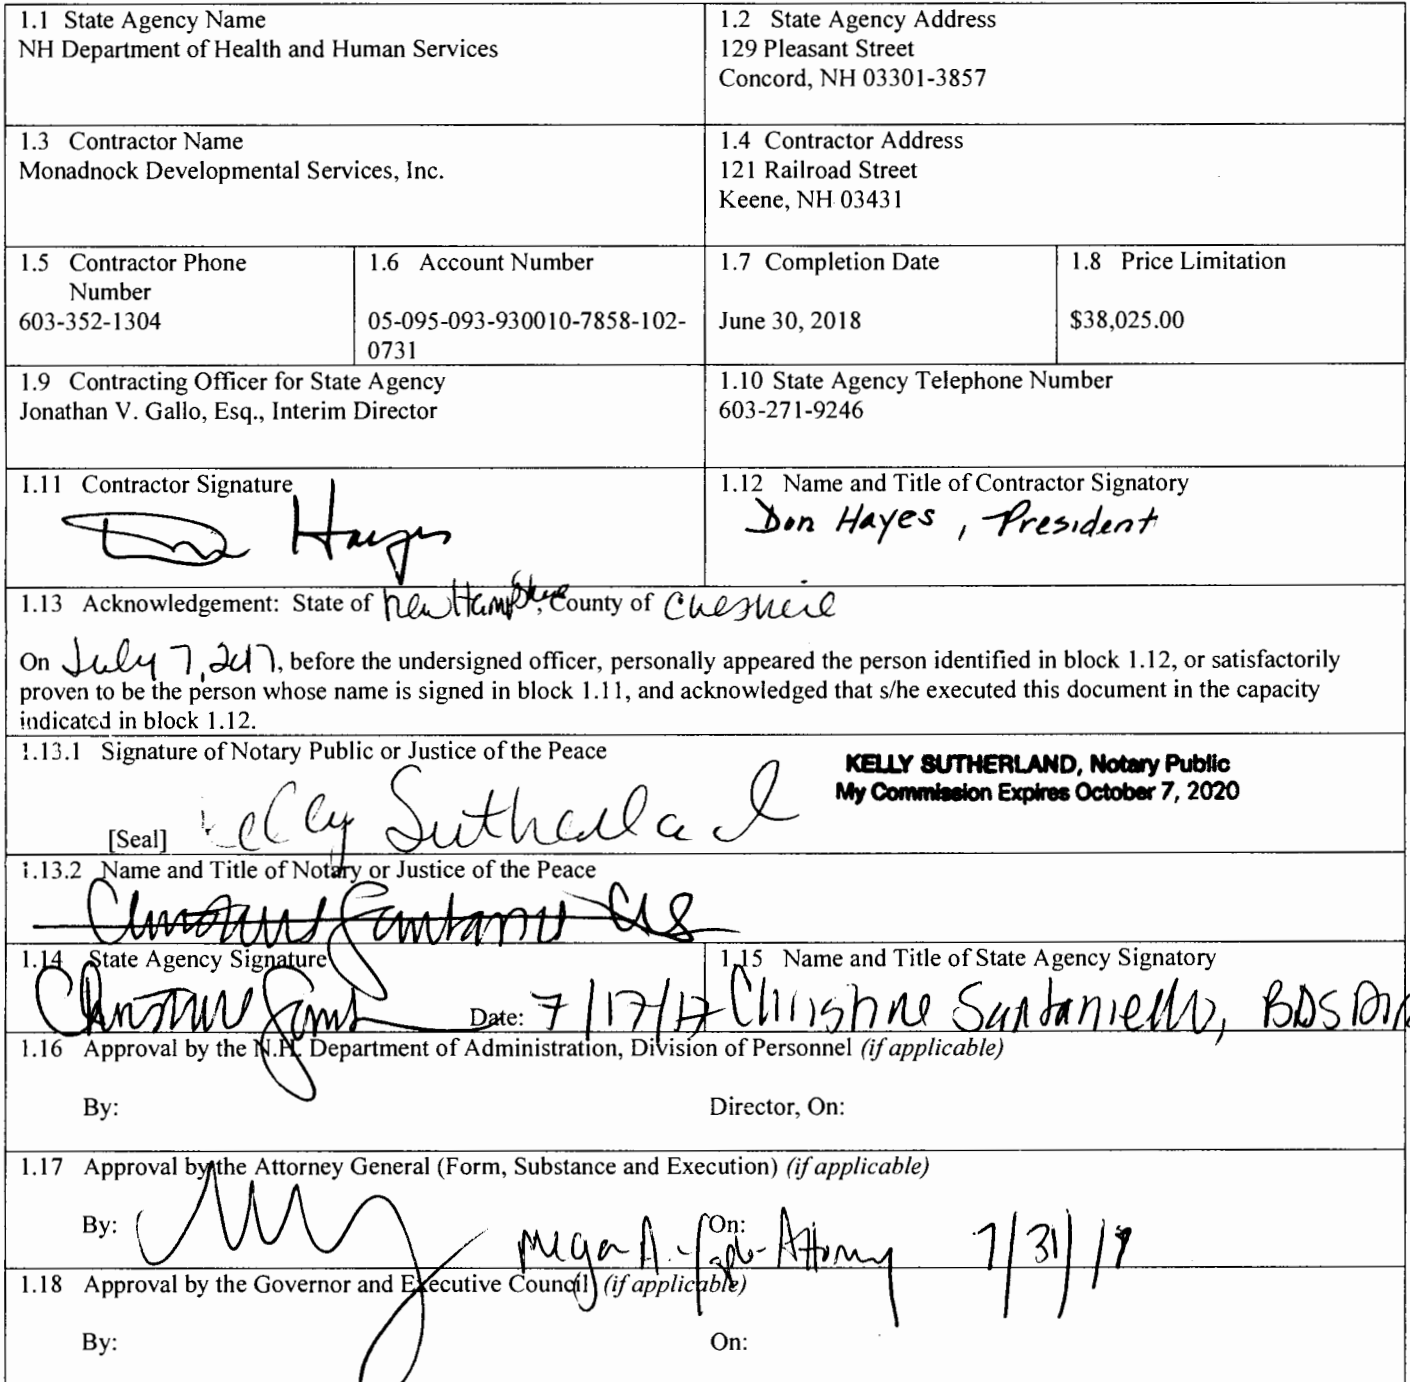 1.1 State Agency Name
NH Department of Health and Human Services
1.2 State Agency Address
129 Pleasant Street
Concord, NH 03301-3857
1.3 Contractor Name
Monadnock Developmental Services, Inc.
1.4 Contractor Address
121 Railroad Street
Keene, NH 03431
1.5 Contractor Phone
Number
603-352-1304
1.6 Account Number
05-095-093-930010-7858-102-
0731
1.7 Completion Date
June 30, 2018
1.8 Price Limitation
$38,025.00
1.9 Contracting Officer for State Agency
Jonathan V. Gallo, Esq., Interim Director
1.10 State Agency Telephone Number
603-271-9246
1.11 Contractor Signature
Don Hayes
1.12 Name and Title of Contractor Signatory
Don Hayes, President
1.13 Acknowledgement: State of New Hampshire, County of Cheshire
On July 7, 2017, before the undersigned officer, personally appeared the person identified in block 1.12, or satisfactorily
proven to be the person whose name is signed in block 1.11, and acknowledged that s/he executed this document in the capacity
indicated in block 1.12.
1.13.1 Signature of Notary Public or Justice of the Peace
KELLY SUTHERLAND, Notary Public
My Commission Expires October 7, 2020
[Seal] Kelly Sutherland
1.13.2 Name and Title of Notary or Justice of the Peace
1.14 State Agency Signature
Date: 7/17/17
1.15 Name and Title of State Agency Signatory
Christine Santaniello, BDS Dir
1.16 Approval by the N.H. Department of Administration, Division of Personnel (if applicable)
By:
Director, On:
1.17 Approval by the Attorney General (Form, Substance and Execution) (if applicable)
By:
On:
Megan A. Attorney 7/31/17
1.18 Approval by the Governor and Executive Council (if applicable)
By:
On: